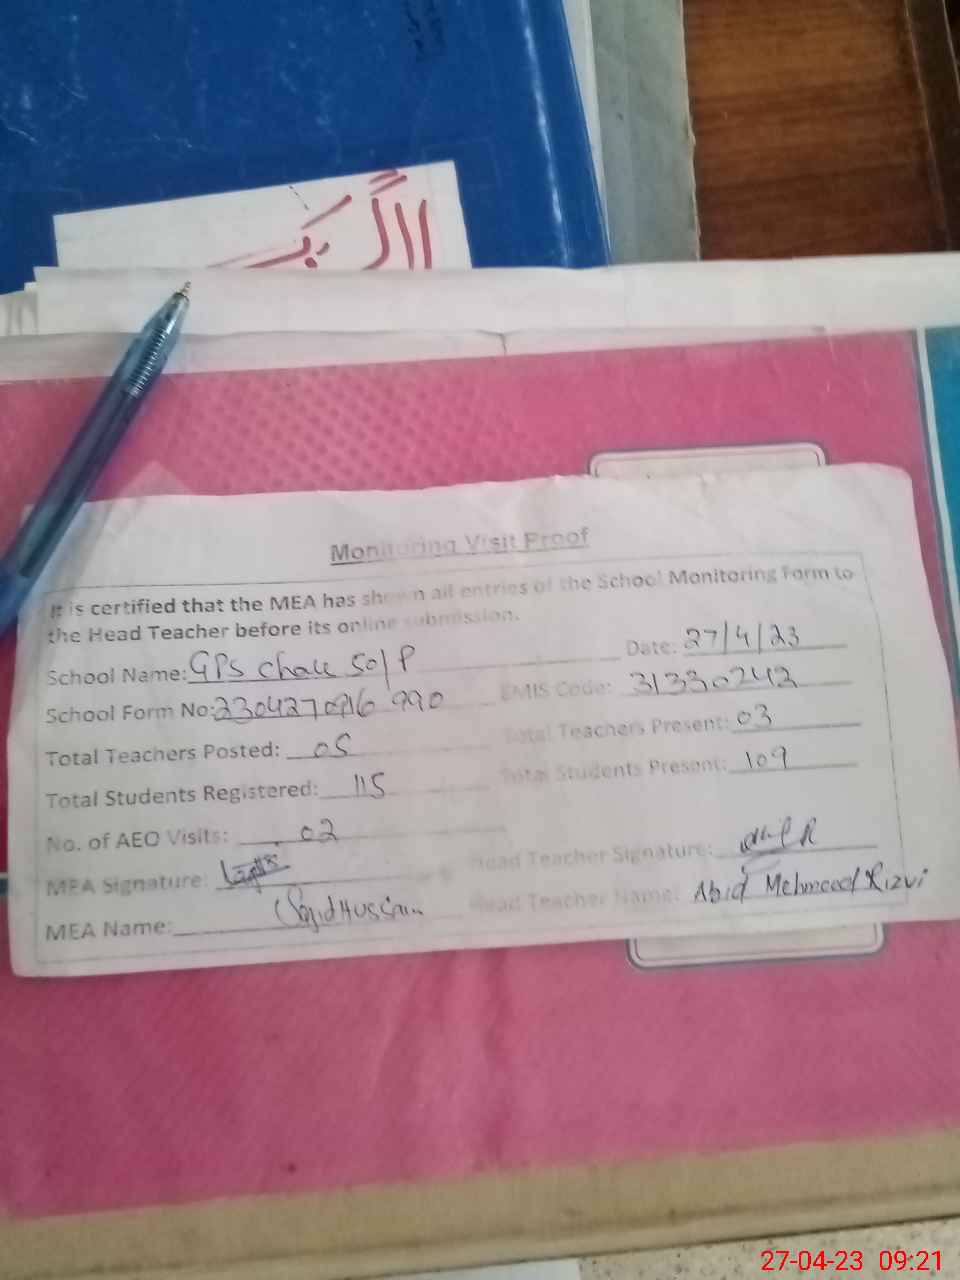 Monitoring Visit Proof
It is certified that the MEA has shown all entries of the School Monitoring Form to
the Head Teacher before its online submission.
School Name: GPS Chak 50/P Date: 27/4/23
School Form No: 2304270916 990 EMIS Code: 31330242
Total Teachers Posted: 05 Total Teachers Present: 03
Total Students Registered: 115 Total Students Present: 109
No. of AEO Visits: 02
MEA Signature: Head Teacher Signature:
MEA Name: Sajid Hussain Head Teacher Name: Abid Mehmood Rizvi
27-04-23 09:21